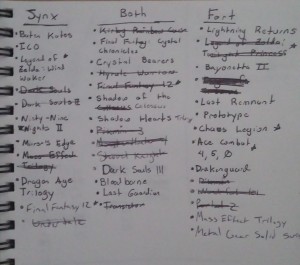 Synx
Baten Kaitos
ICO
Legend of
Zelda: Wind
Waker
Dark Souls
Dark Souls 2
Ninty-Nine
Nights II
Mirror's Edge
Mass Effect
Trilogy
Dragon Age
Trilogy
Final Fantasy 12 *
Both
Kirby Rainbow Curse
Final Fantasy Crystal
chronicles
Crystal Bearers
Hyrule Warriors
Final Fantasy 12 *
Shadow of the
Colossus
Shadow Hearts
Shovel Knight
Dark Souls III
Bloodborne
Last Guardian
Transistor
Font
Lightning Returns
Legend of Zelda:
Twilight Princess
Bayonetta II
Last Remnant
Prototype
Chaos Legion
Ace Combat
4, 5, 0
Drakengard
Portal 2
Mass Effect Trilogy
Metal Gear Solid